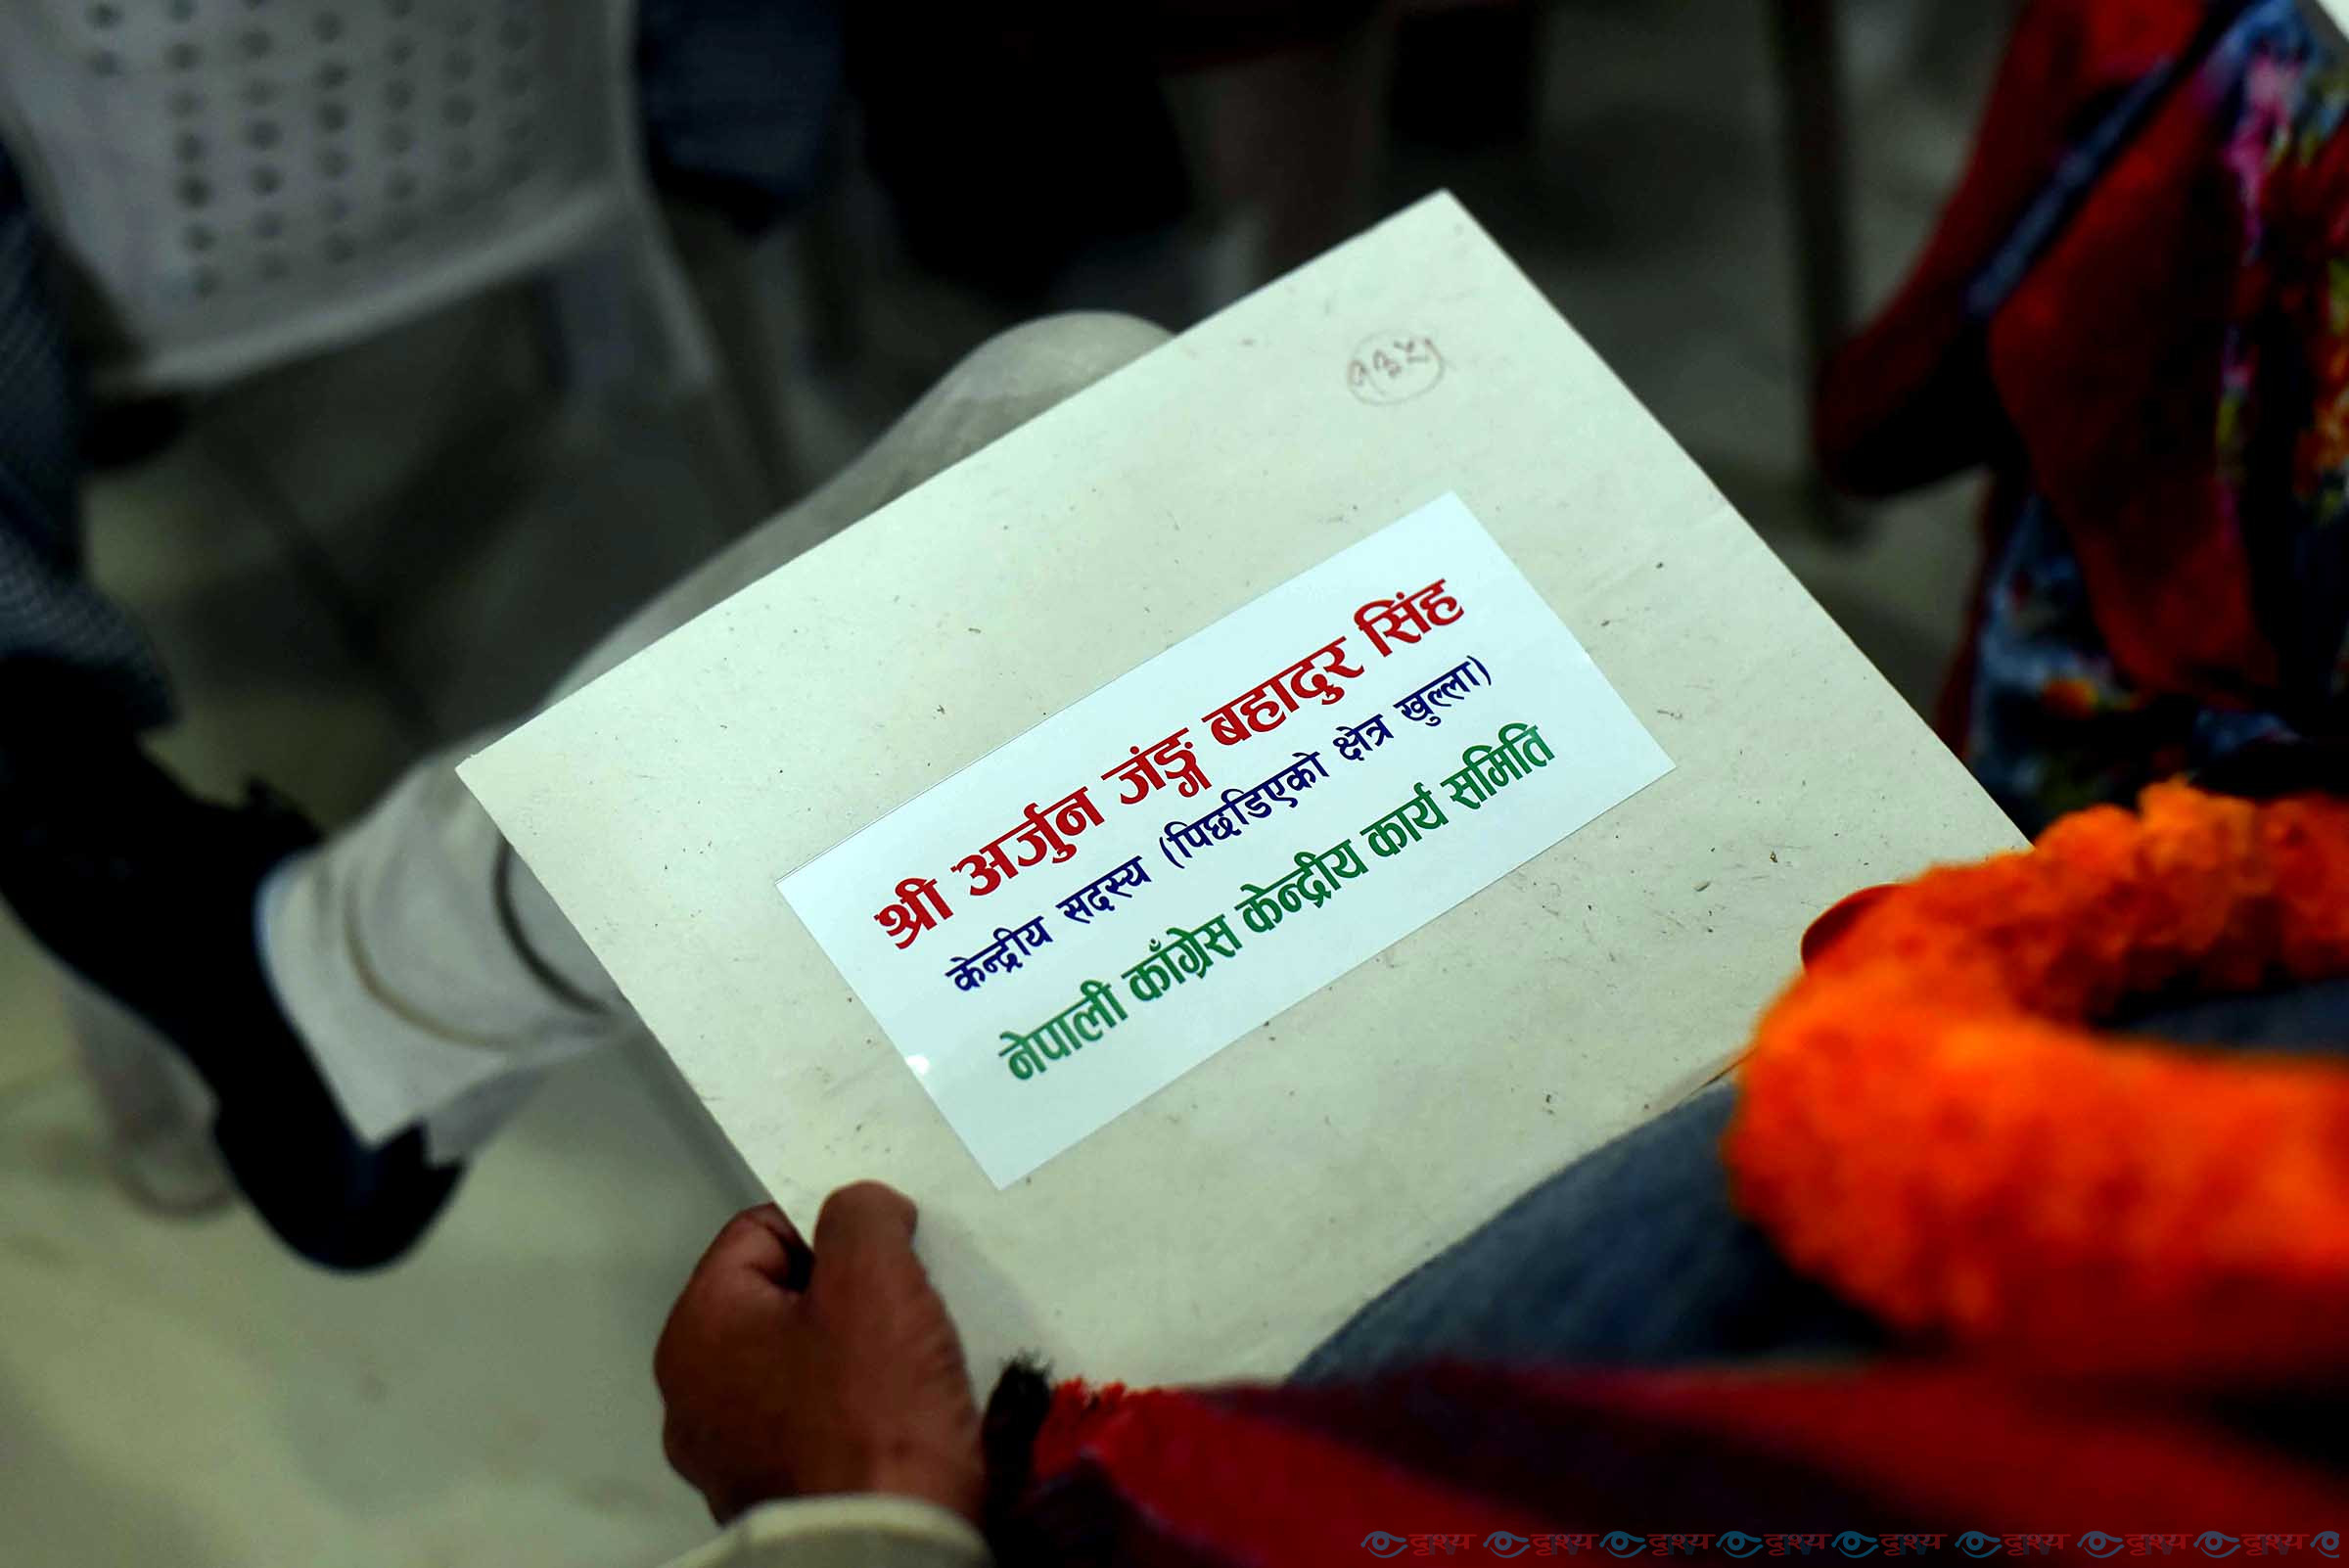 श्री अर्जुन जंङ्ग बहादुर सिंह
केन्द्रीय सदस्य (पिछडिएको क्षेत्र खुल्ला)
नेपाली काँग्रेस केन्द्रीय कार्य समिति
दृश्य दृश्य दृश्य दृश्य दृश्य दृश्य दृश्य दृश्य